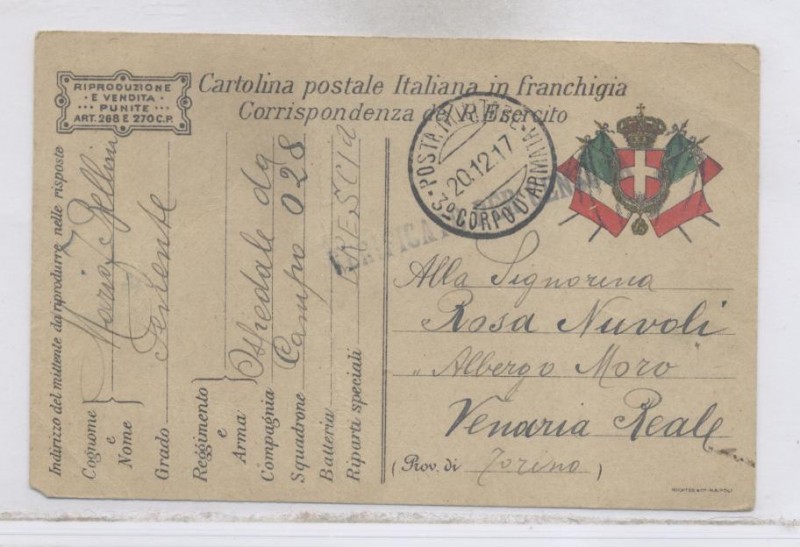 RIPRODUZIONE
E VENDITA
PUNITE
ART. 268 E 270 C.P.
Cartolina postale Italiana in franchigia
Corrispondenza del R. Esercito
POSTA MILITARE
20.12.17
3º CORPO D'ARMATA
VERIFICATO PER CENSURA
Indirizzo del mittente da riprodurre nelle risposte
Cognome e Nome
Mario Bellini
Grado
Tenente
Reggimento e Arma
Ospedale da
Compagnia
Campo 028
Squadrone
Batteria
Riparti speciali
BRESCIA
Alla Signorina
Rosa Nuvoli
Albergo Moro
Venaria Reale
(Prov. di Torino)